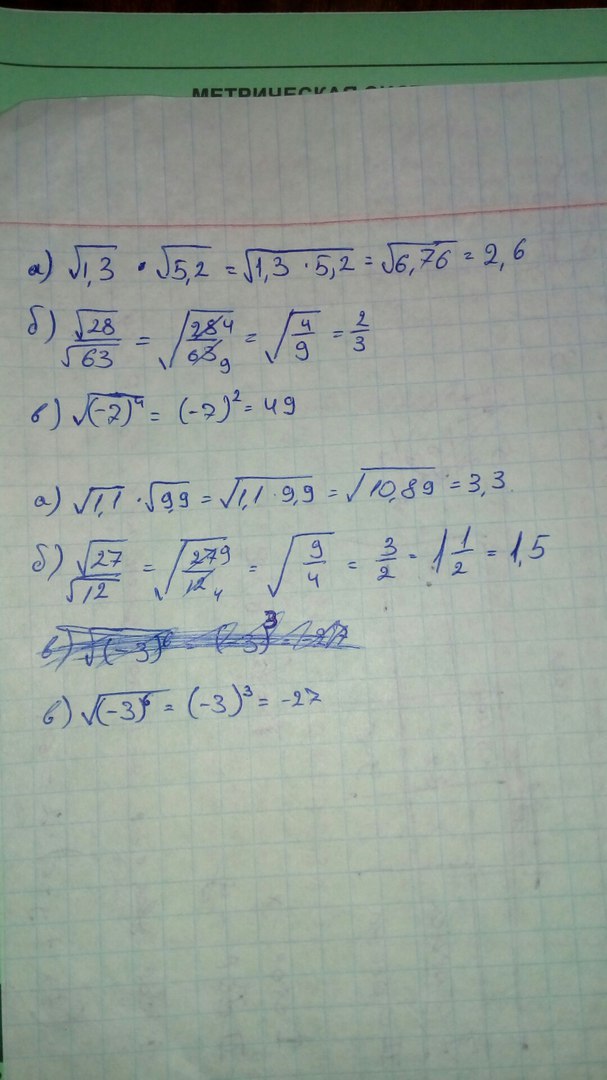 МЕТРИЧЕСКАЯ
а) √1,3 · √5,2 = √1,3 · 5,2 = √6,76 = 2,6
б) √28/√63 = √28 4/63 9 = √4/9 = 2/3
в) √(-7)⁴ = (-7)² = 49
а) √1,1 · √9,9 = √1,1 · 9,9 = √10,89 = 3,3
б) √27/√12 = √27 9/12 4 = √9/4 = 3/2 = 1 1/2 = 1,5
в) √(-3)⁶ = (-3)³ = -27
в) √(-3)⁶ = (-3)³ = -27